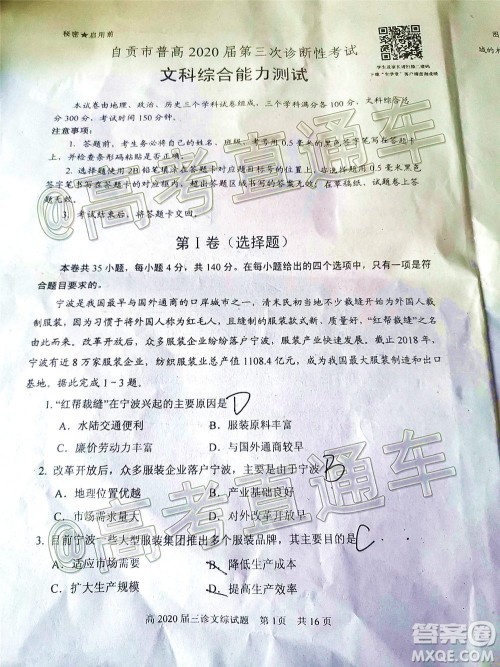 秘密★启用前
自贡市普高2020届第三次诊断性考试
文科综合能力测试
本试卷由地理、政治、历史三个学科试卷组成,三个学科满分各100分,文科综合总
分300分,考试时间150分钟。
注意事项:
1. 答题前,考生务必将自己的姓名、班级、
用0.5毫米黑色签字笔填写在答题卡
上,并检查条形码粘贴是否正确。
2. 选择题使用2B铅笔填涂在答题卡对应题目标号的位置上;非选择题用0.5毫米黑色
签字笔书写在答题卡的对应框内,超出答题区域书写的答案无效;在草稿纸、试题卷上
答题无效。
3. 考试结束后,将答题卡交回。
第Ⅰ卷(选择题)
本卷共35小题,每小题4分,共140分。在每小题给出的四个选项中,只有一项是符
合题目要求的。
宁波是我国最早与国外通商的口岸城市之一,清末民初当地不少裁缝开始为外国人裁
制服装,因为习惯于将外国人称为红毛人,且缝制的服装款式新、质量优,“红帮裁缝”的名
声由此而来。改革开放后,众多服装企业落户宁波,服装产业快速发展。截止2018年,
宁波有近8万家服装企业,纺织服装业总产值1108.4亿元,成为我国最大服装制造和出口
基地。据此完成1~3题。
1. “红帮裁缝”在宁波兴起的主要原因是 D
A. 水陆交通便利 B. 服装原料丰富
C. 廉价劳动力丰富 D. 与国外通商较早
2. 改革开放后,众多服装企业落户宁波,主要是由于宁波 B
A. 地理位置优越 B. 产业基础良好
C. 市场需求量大 D. 对外改革开放早
3. 目前宁波一些大型服装集团推出多个服装品牌,其主要目的是 C
A. 适应市场需要 B. 降低生产成本
C. 扩大生产规模 D. 提高生产效率
高2020届三诊文综试题 第1页 共16页
@高考直通车
@高考直通车
答案圈
MXQE.COM